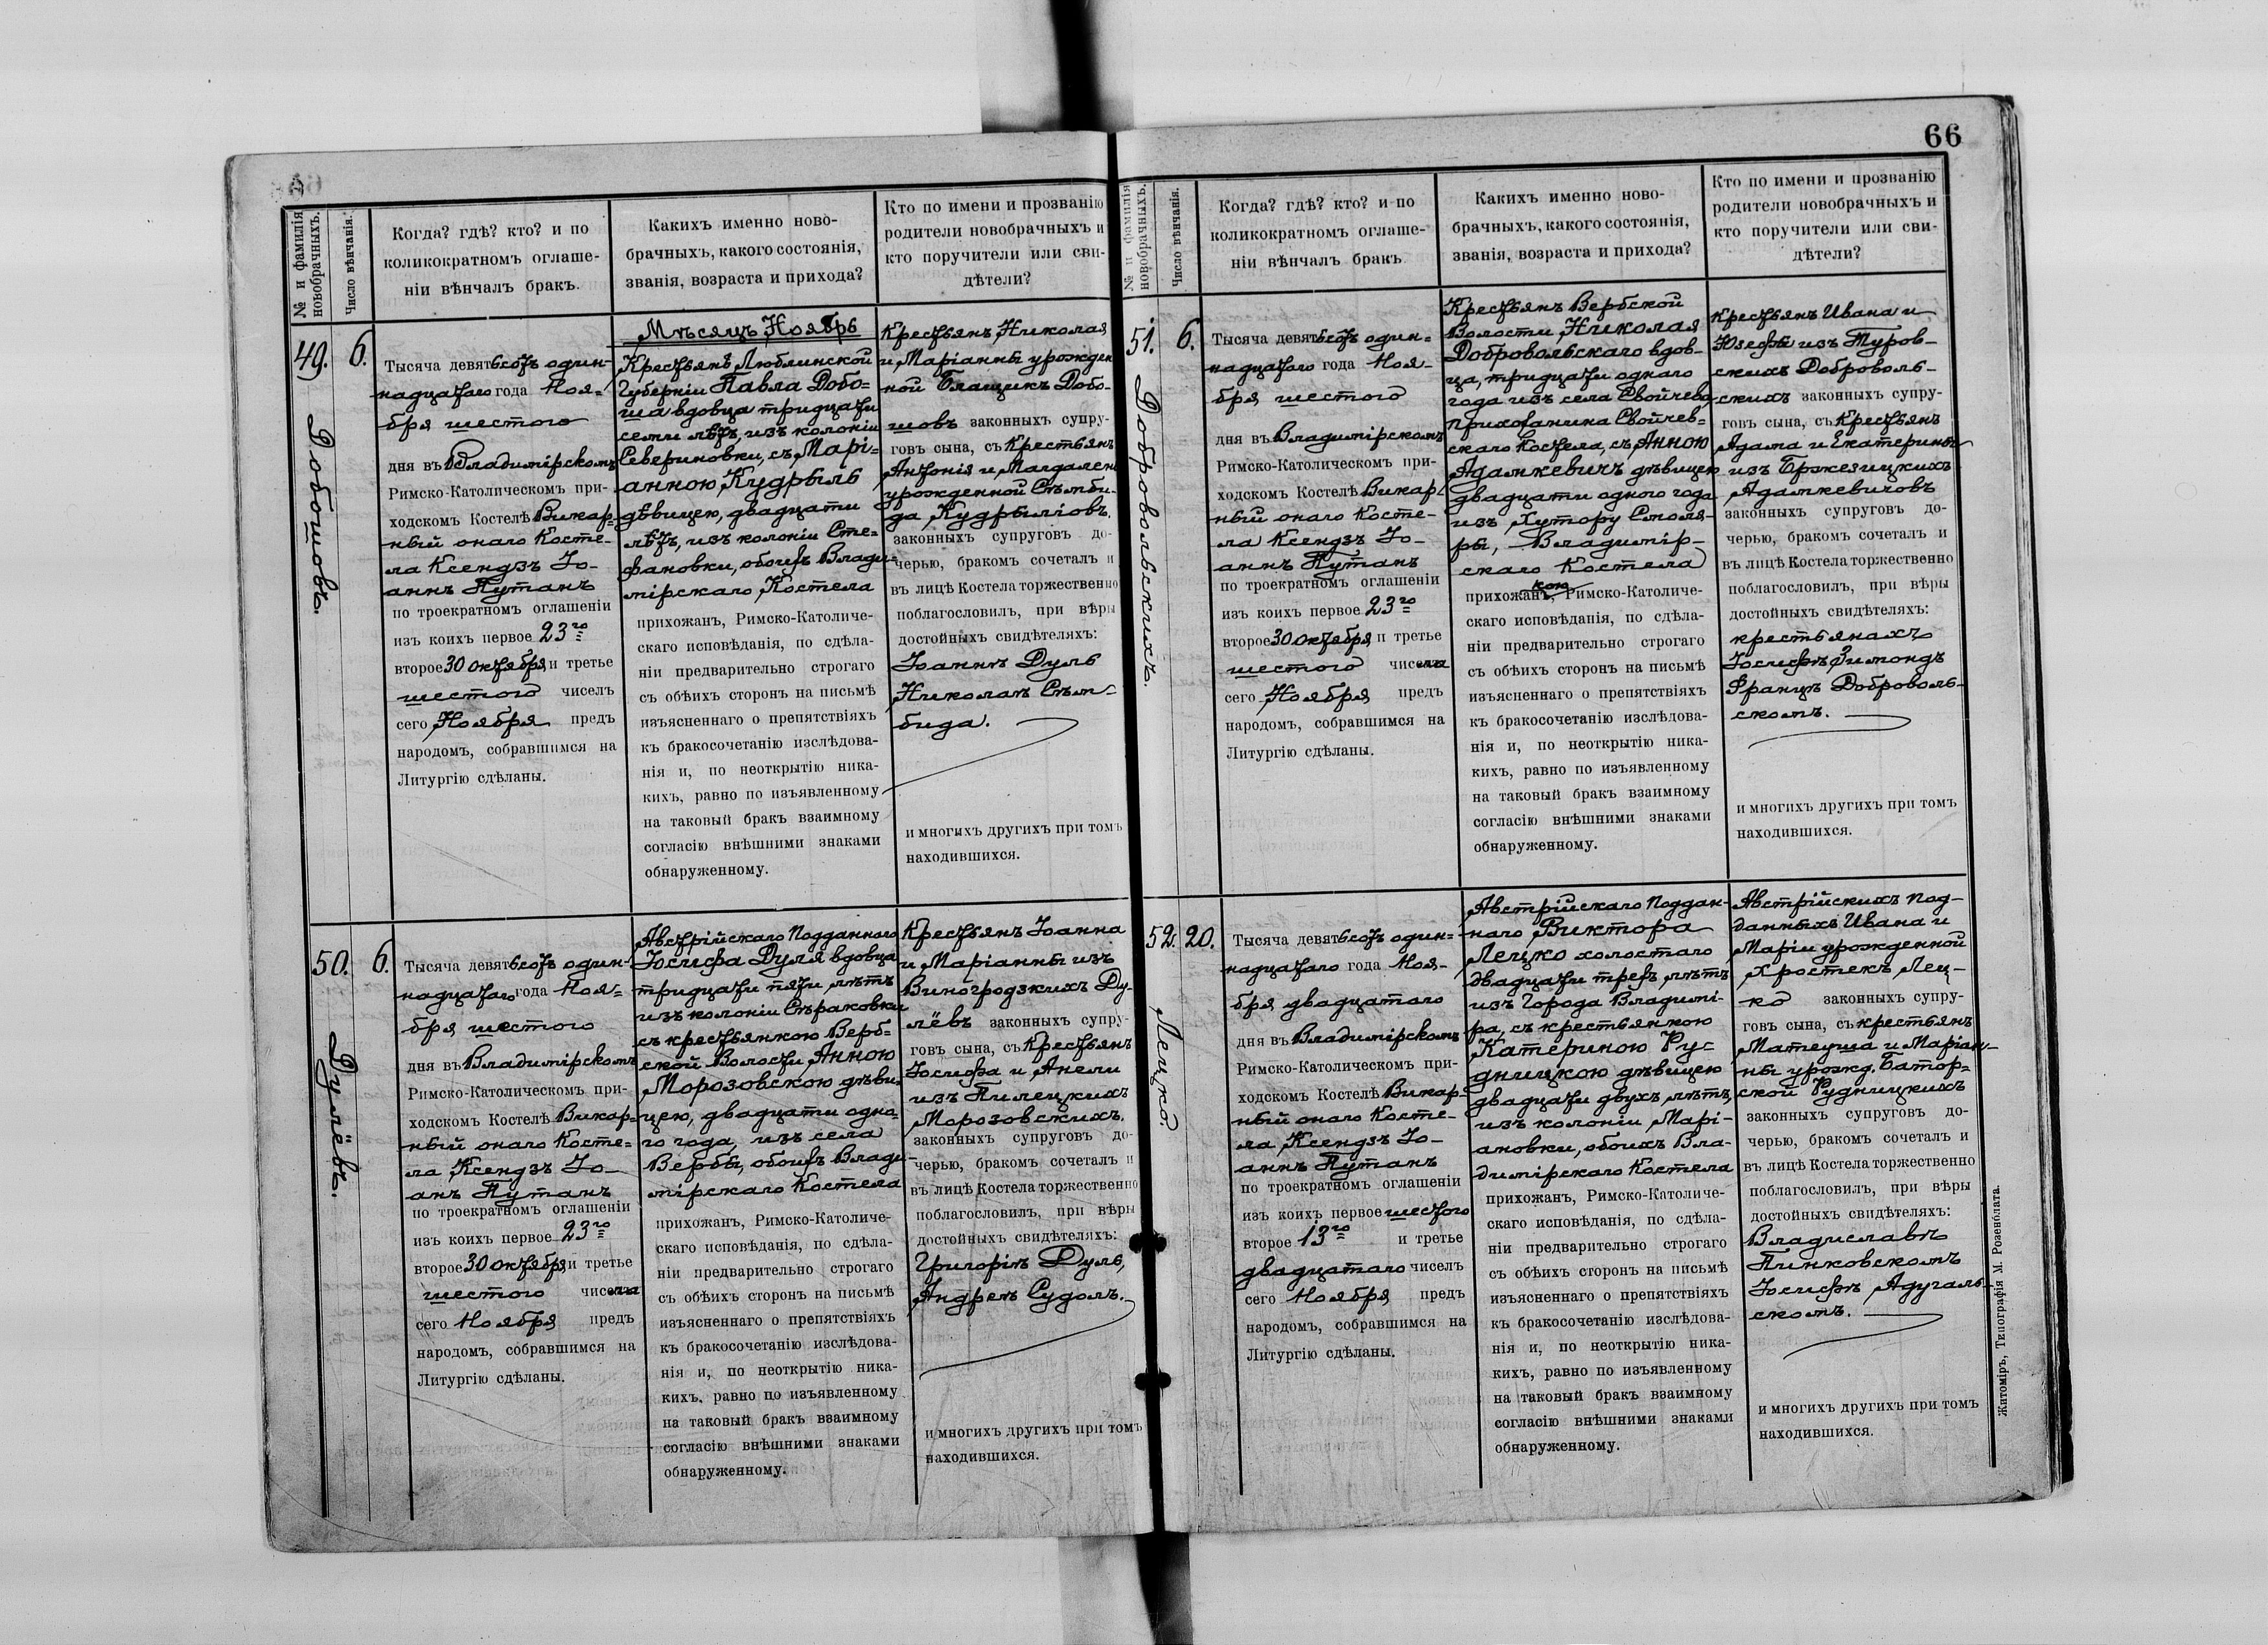 66
№ и фамилія
новобрачныхъ.
Число вѣнчанія.
Когда? гдѣ? кто? и по
коликократномъ оглаше-
ніи вѣнчалъ бракъ.
Какихъ именно ново-
брачныхъ, какого состоянія,
званія, возраста и прихода?
Кто по имени и прозванію
родители новобрачныхъ и
кто поручители или сви-
дѣтели?
49.
Добошовъ.
6.
Тысяча девятьсотъ один-
надцатаго года Ноя-
бря шестого
дня въ Владимірскомъ
Римско-Католическомъ при-
ходскомъ Костелѣ Викар-
ный онаго Косте-
ла Ксендзъ Іо-
аннъ Путанъ
по троекратномъ оглашеніи
изъ коихъ первое 23го
второе 30 октября и третье
шестого чиселъ
сего Ноября предъ
народомъ, собравшимся на
Литургію сдѣланы.
Мѣсяцъ Ноябрь
Крестьянъ Люблинской
Губерніи Павла Добо-
ша вдовца тридцати
семи лѣтъ, изъ колоніи
Севериновки, съ Марі-
анною Кудрыль
дѣвицею, двадцати
лѣтъ, изъ колоніи Сте-
фановки, обоихъ Влади-
мірскаго Костела
прихожанъ, Римско-Католиче-
скаго исповѣданія, по сдѣла-
ніи предварительно строгаго
съ обѣихъ сторонъ на письмѣ
изъясненнаго о препятствіяхъ
къ бракосочетанію изслѣдова-
нія и, по неоткрытію ника-
кихъ, равно по изъявленному
на таковый бракъ взаимному
согласію внѣшними знаками
обнаруженному.
Крестьянъ Николая
и Маріанны урожден
ной Блащикъ Добо-
шовъ законныхъ супру-
говъ сына, съ Крестьянъ
Антонія и Магдален
урожденной Стъмби-
да Кудрыліовъ.
законныхъ супруговъ до-
черью, бракомъ сочеталъ и
въ лицѣ Костела торжественно
поблагословилъ, при вѣры
достойныхъ свидѣтеляхъ:
Іоаннѣ Дуль
Николаѣ Стъм-
бида.
и многихъ другихъ при томъ
находившихся.
50.
Дулёвъ.
6.
Тысяча девятьсотъ один-
надцатаго года Ноя-
бря шестого
дня въ Владимірскомъ
Римско-Католическомъ при-
ходскомъ Костелѣ Викар-
ный онаго Косте-
ла Ксендзъ Іо-
анъ Путанъ
по троекратномъ оглашеніи
изъ коихъ первое 23го
второе 30 октября и третье
шестого числа
сего Ноября предъ
народомъ, собравшимся на
Литургію сдѣланы.
Австрійскаго Подданного
Іосифа Дуля вдовца
тридцати пяти лѣтъ
изъ колоніи Стъраковки
съ крестьянкою Верб-
ской Волости Анною
Морозовскою дѣви-
цею, двадцати одно-
го года, изъ села
Вербы, обоихъ Влади-
мірскаго Костела
прихожанъ, Римско-Католиче-
скаго исповѣданія, по сдѣла-
ніи предварительно строгаго
съ обѣихъ сторонъ на письмѣ
изъясненнаго о препятствіяхъ
къ бракосочетанію изслѣдова-
нія и, по неоткрытію ника-
кихъ, равно по изъявленному
на таковый бракъ взаимному
согласію внѣшними знаками
обнаруженному.
Крестьянъ Іоанна
и Маріанны изъ
Виногродзкихъ Ду-
лёвъ законныхъ супру-
говъ сына, съ Крестьянъ
Іосифа и Анели
изъ Пилецкихъ
Морозовскихъ.
законныхъ супруговъ до-
черью, бракомъ сочеталъ и
въ лицѣ Костела торжественно
поблагословилъ, при вѣры
достойныхъ свидѣтеляхъ:
Григоріѣ Дуль,
Андреѣ Судолъ.
и многихъ другихъ при томъ
находившихся.
№ и фамилія
новобрачныхъ.
Число вѣнчанія.
Когда? гдѣ? кто? и по
коликократномъ оглаше-
ніи вѣнчалъ бракъ
Какихъ именно ново-
брачныхъ, какого состоянія,
званія, возраста и прихода?
Кто по имени и прозванію
родители новобрачныхъ и
кто поручители или сви-
дѣтели?
51.
Добровольскихъ.
6.
Тысяча девятьсотъ один-
надцатаго года Ноя-
бря шестого
дня въ Владимірскомъ
Римско-Католическомъ при-
ходскомъ Костелѣ Викар-
ный онаго Косте-
ла Ксендзъ Іо-
аннъ Путанъ
по троекратномъ оглашеніи
изъ коихъ первое 23го
второе 30 октября и третье
шестого числа
сего Ноября предъ
народомъ, собравшимся на
Литургію сдѣланы.
Крестьянъ Вербской
Волости, Николая
Добровольскаго вдов-
ца, тридцати одного
года изъ села Свойчева
прихожанина Свойчев-
скаго Костела, съ Анною
Адамкевичъ дѣвицею
двадцати одного года
изъ Хутору Смоля-
ры, Владимір-
скаго Костела
кою
прихожанъ, Римско-Католиче-
скаго исповѣданія, по сдѣла-
ніи предварительно строгаго
съ обѣихъ сторонъ на письмѣ
изъясненнаго о препятствіяхъ
къ бракосочетанію изслѣдова-
нія и, по неоткрытію ника-
кихъ, равно по изъявленному
на таковый бракъ взаимному
согласію внѣшними знаками
обнаруженному.
Крестьянъ Ивана и
Юзефы изъ Туров-
скихъ Доброволь-
скихъ законныхъ супру-
говъ сына, съ Крестьянъ
Адама и Екатерины
изъ Бржезицкихъ
Адамкевичовъ
законныхъ супруговъ до-
черью, бракомъ сочеталъ и
въ лицѣ Костела торжественно
поблагословилъ, при вѣры
достойныхъ свидѣтеляхъ:
крестьянахъ
Іосифѣ Зимондъ
Францѣ Доброволь-
скомъ.
и многихъ другихъ при томъ
находившихся.
52.
Лецко.
20.
Тысяча девятьсотъ один-
надцатаго года Ноя-
бря двадцатого
дня въ Владимірскомъ
Римско-Католическомъ при-
ходскомъ Костелѣ Викар-
ный онаго Косте-
ла Ксендзъ Іо-
аннъ Путанъ
по троекратномъ оглашеніи
изъ коихъ первое шестого
второе 13го и третье
двадцатаго чиселъ
сего Ноября предъ
народомъ, собравшимся на
Литургію сдѣланы.
Австрійскаго Поддан-
наго Виктора
Лецко холостаго
двадцати трехъ лѣтъ
изъ Города Владимі-
ра, съ крестьянкою
Катериною Ру-
дницкою дѣвицею
двадцати двухъ лѣтъ,
изъ колоніи Марі-
ановки, обоихъ Вла-
димірскаго Костела
прихожанъ, Римско-Католиче-
скаго исповѣданія, по сдѣла-
ніи предварительно строгаго
съ обѣихъ сторонъ на письмѣ
изъясненнаго о препятствіяхъ
къ бракосочетанію изслѣдова-
нія и, по неоткрытію ника-
кихъ, равно по изъявленному
на таковый бракъ взаимному
согласію внѣшними знаками
обнаруженному.
Австрійскихъ под-
данныхъ Ивана и
Маріи урожденной
Хростекъ Лец-
ко законныхъ супру-
говъ сына, съ крестьянъ
Матеуша и Маріан-
ны урожд. Батор-
ской Рудницкихъ
законныхъ супруговъ до-
черью, бракомъ сочеталъ и
въ лицѣ Костела торжественно
поблагословилъ, при вѣры
достойныхъ свидѣтеляхъ:
Владиславѣ
Пинковскомъ
Іосифѣ Адугаль-
скомъ.
и многихъ другихъ при томъ
находившихся.
Житоміръ, Типографія М. Розенблата.